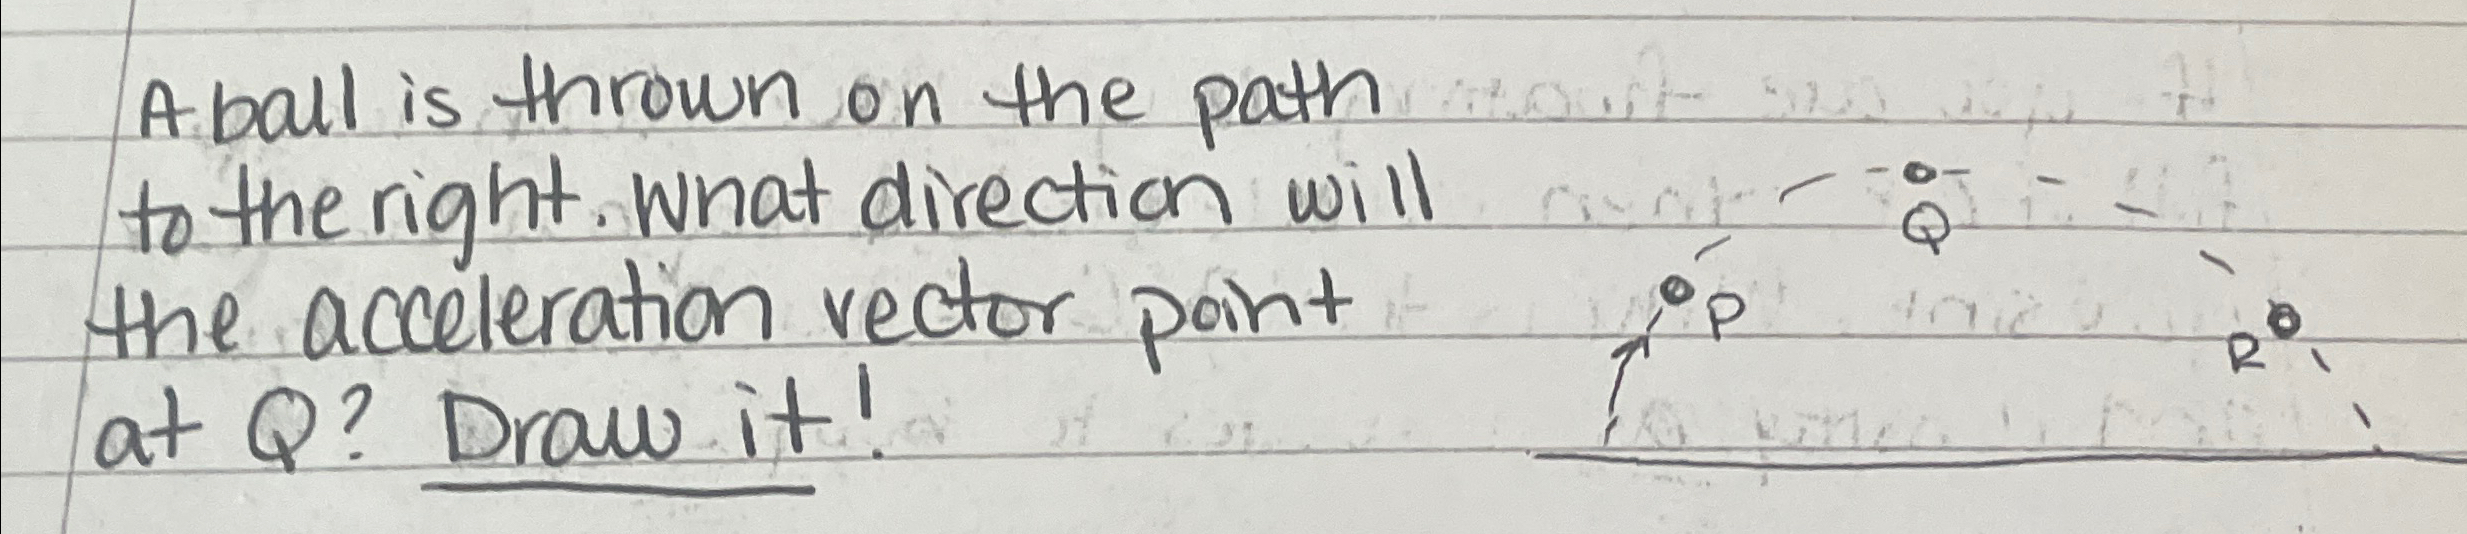 A ball is thrown on the path
to the right. What direction will
the acceleration vector point
at Q? Draw it!
Q
P
R